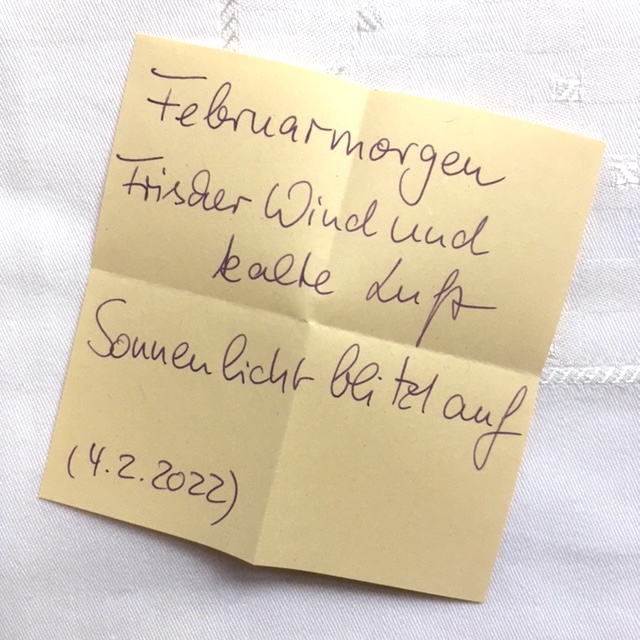 Februarmorgen
Frischer Wind und
kalte Luft
Sonnenlicht blitzt auf
(4.2.2022)